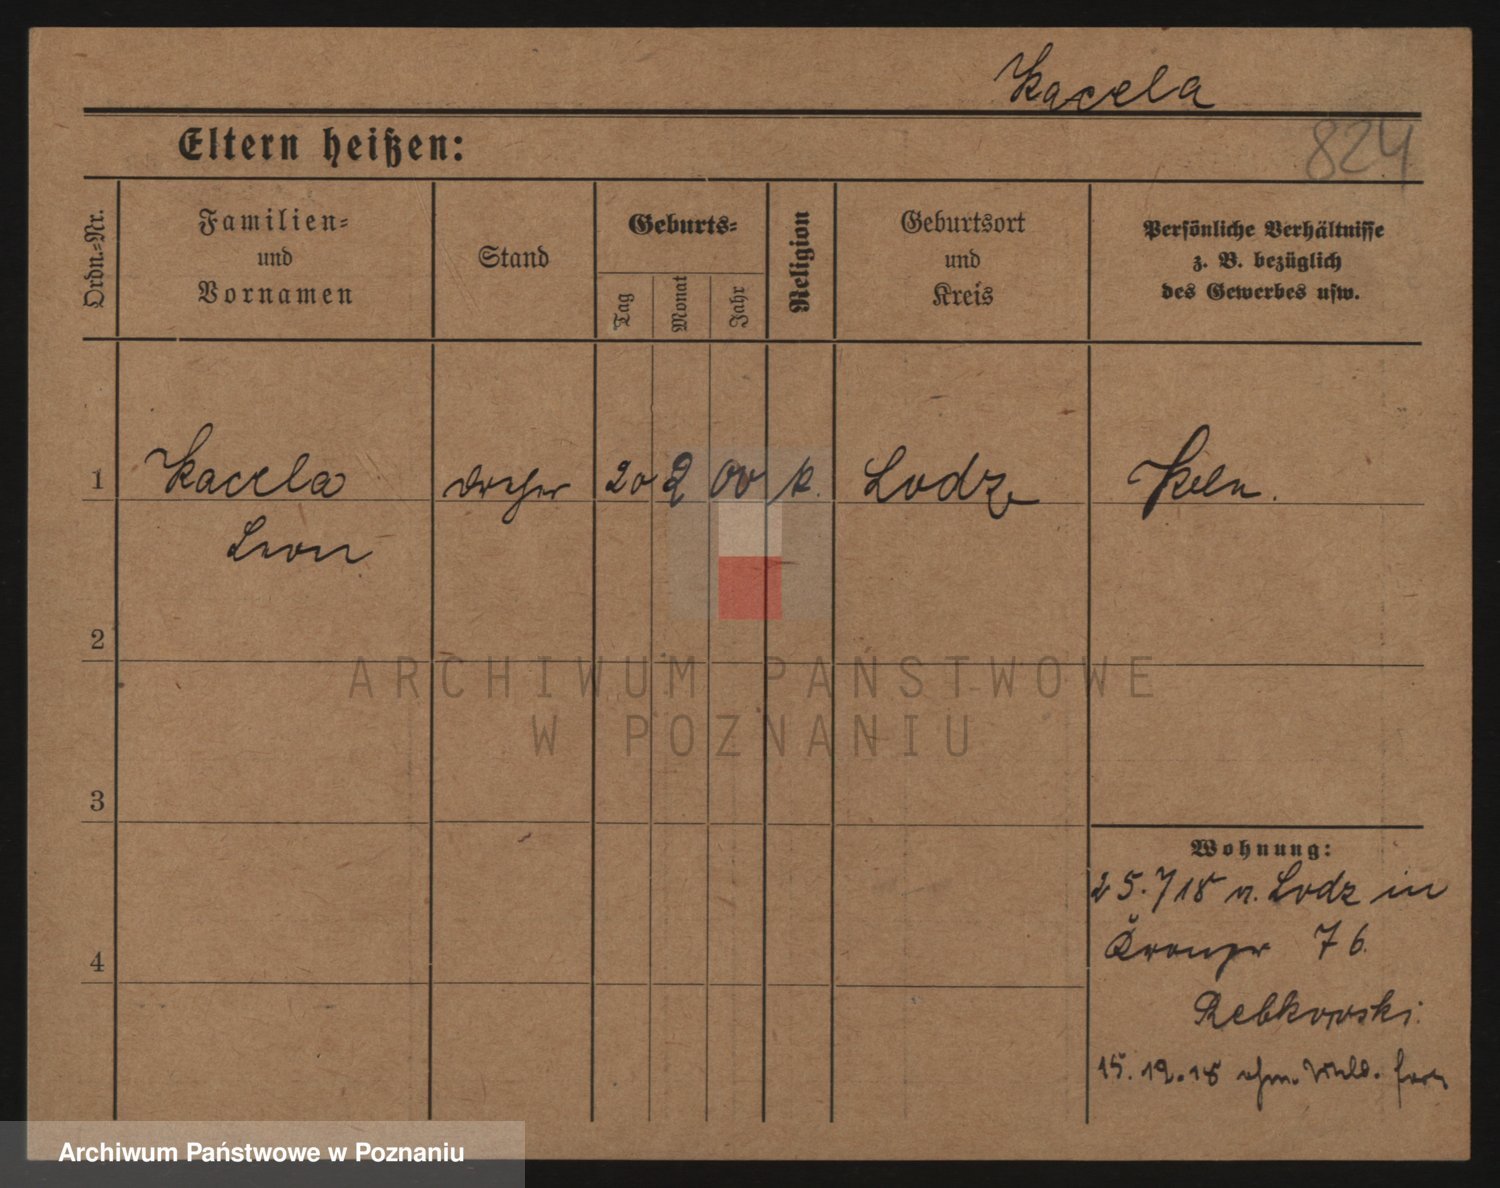 Kacela
824
Eltern heißen:
Ordn.-Nr.
Familien-
und
Vornamen
Stand
Geburts-
Tag
Monat
Jahr
Religion
Geburtsort
und
Kreis
Persönliche Verhältnisse
z. B. bezüglich
des Gewerbes usw.
1 Kacela Dreher 20 2 00 k. Lodz
Leon
2
3
4
Wohnung:
25.7 18 v. Lodz in
76.
Rebkowski.
15.12.18
ARCHIWUM PAŃSTWOWE
W POZNANIU
Archiwum Państwowe w Poznaniu